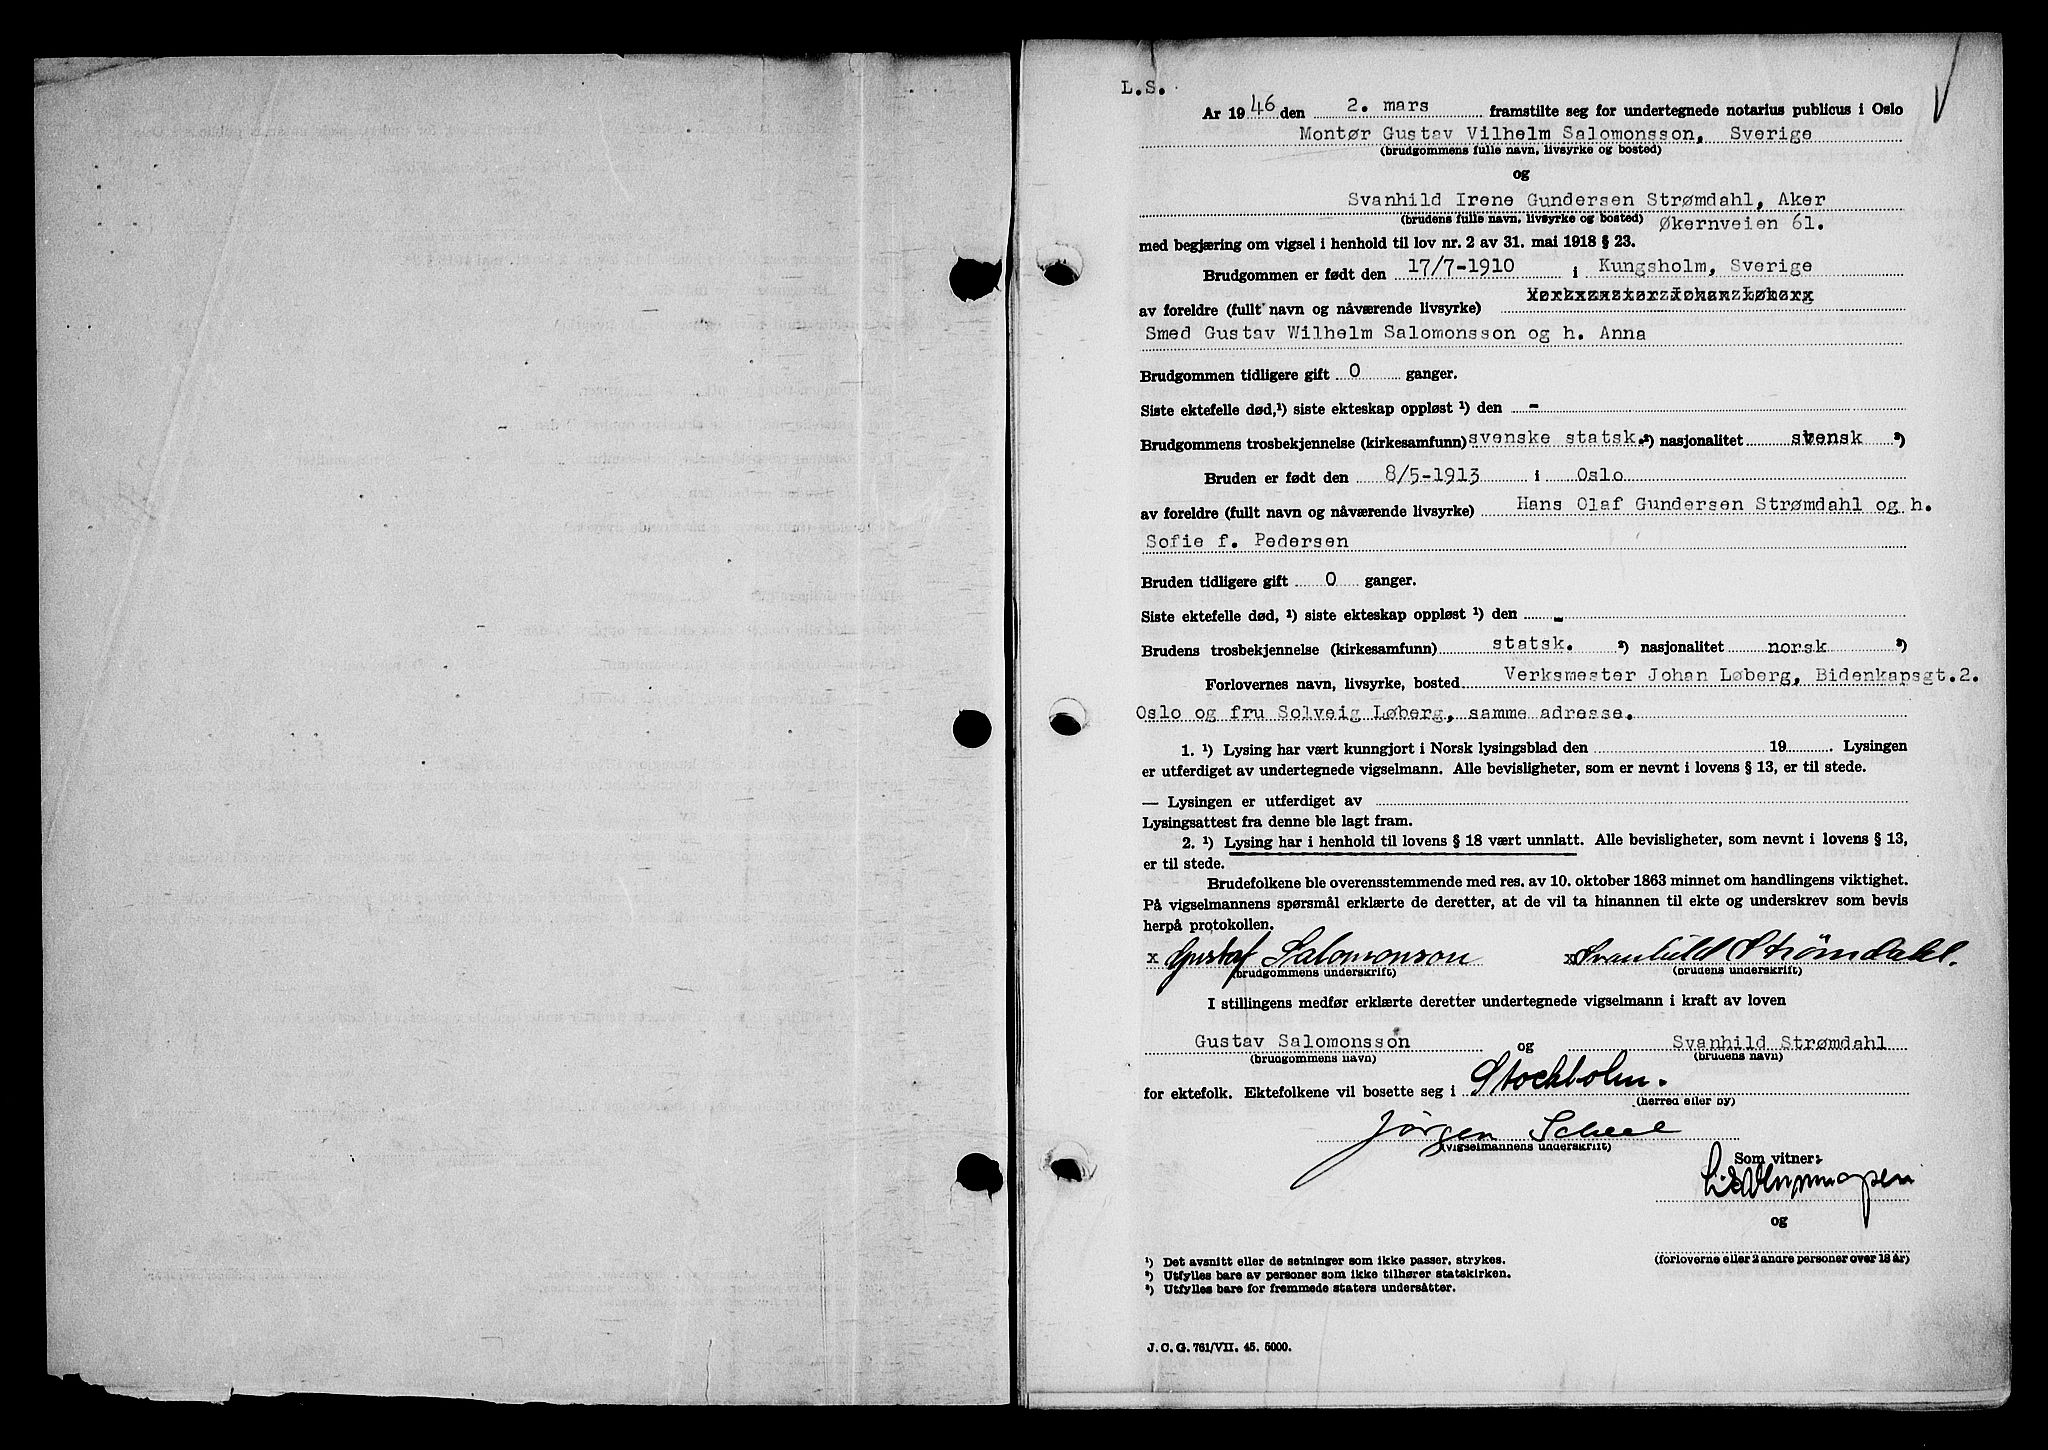 L.S.
År 1946 den 2. mars framstilte seg for undertegnede notarius publicus i Oslo
Montør Gustav Vilhelm Salomonsson, Sverige
(brudgommens fulle navn, livsyrke og bosted)
og
Svanhild Irene Gundersen Strømdahl, Aker
(brudens fulle navn, livsyrke og bosted) Økernveien 61.
med begjæring om vigsel i henhold til lov nr. 2 av 31. mai 1918 § 23.
Brudgommen er født den 17/7-1910 i Kungsholm, Sverige
av foreldre (fullt navn og nåværende livsyrke)
Smed Gustav Wilhelm Salomonsson og h. Anna
Brudgommen tidligere gift 0 ganger.
Siste ektefelle død,¹) siste ekteskap oppløst ¹) den -
Brudgommens trosbekjennelse (kirkesamfunn) svenske statsk. ²) nasjonalitet svensk ³)
Bruden er født den 8/5-1913 i Oslo
av foreldre (fullt navn og nåværende livsyrke) Hans Olaf Gundersen Strømdahl og h.
Sofie f. Pedersen
Bruden tidligere gift 0 ganger.
Siste ektefelle død, ¹) siste ekteskap oppløst ¹) den -
Brudens trosbekjennelse (kirkesamfunn) statsk. ²) nasjonalitet norsk ³)
Forlovernes navn, livsyrke, bosted Verksmester Johan Løberg, Bidenkapsgt.2.
Oslo og fru Solveig Løberg, samme adresse.
1. ¹) Lysing har vært kunngjort i Norsk lysingsblad den 19 . Lysingen
er utferdiget av undertegnede vigselmann. Alle bevisligheter, som er nevnt i lovens § 13, er til stede.
— Lysingen er utferdiget av
Lysingsattest fra denne ble lagt fram.
2. ¹) Lysing har i henhold til lovens § 18 vært unnlatt. Alle bevisligheter, som nevnt i lovens § 13,
er til stede.
Brudefolkene ble overensstemmende med res. av 10. oktober 1863 minnet om handlingens viktighet.
På vigselmannens spørsmål erklærte de deretter, at de vil ta hinannen til ekte og underskrev som bevis
herpå protokollen.
x Gustaf Salomonson x Svanhild Strömdahl.
(brudgommens underskrift) (brudens underskrift)
I stillingens medfør erklærte deretter undertegnede vigselmann i kraft av loven
Gustav Salomonsson og Svanhild Strømdahl
(brudgommens navn) (brudens navn)
for ektefolk. Ektefolkene vil bosette seg i Stockholm.
(herred eller by)
Jørgen Scheel
(vigselmannens underskrift)
Som vitner:
og
(forloverne eller 2 andre personer over 18 år)
¹) Det avsnitt eller de setninger som ikke passer, strykes.
²) Utfylles bare av personer som ikke tilhører statskirken.
³) Utfylles bare for fremmede staters undersåtter.
J. C. G. 761/VII. 45. 5000.